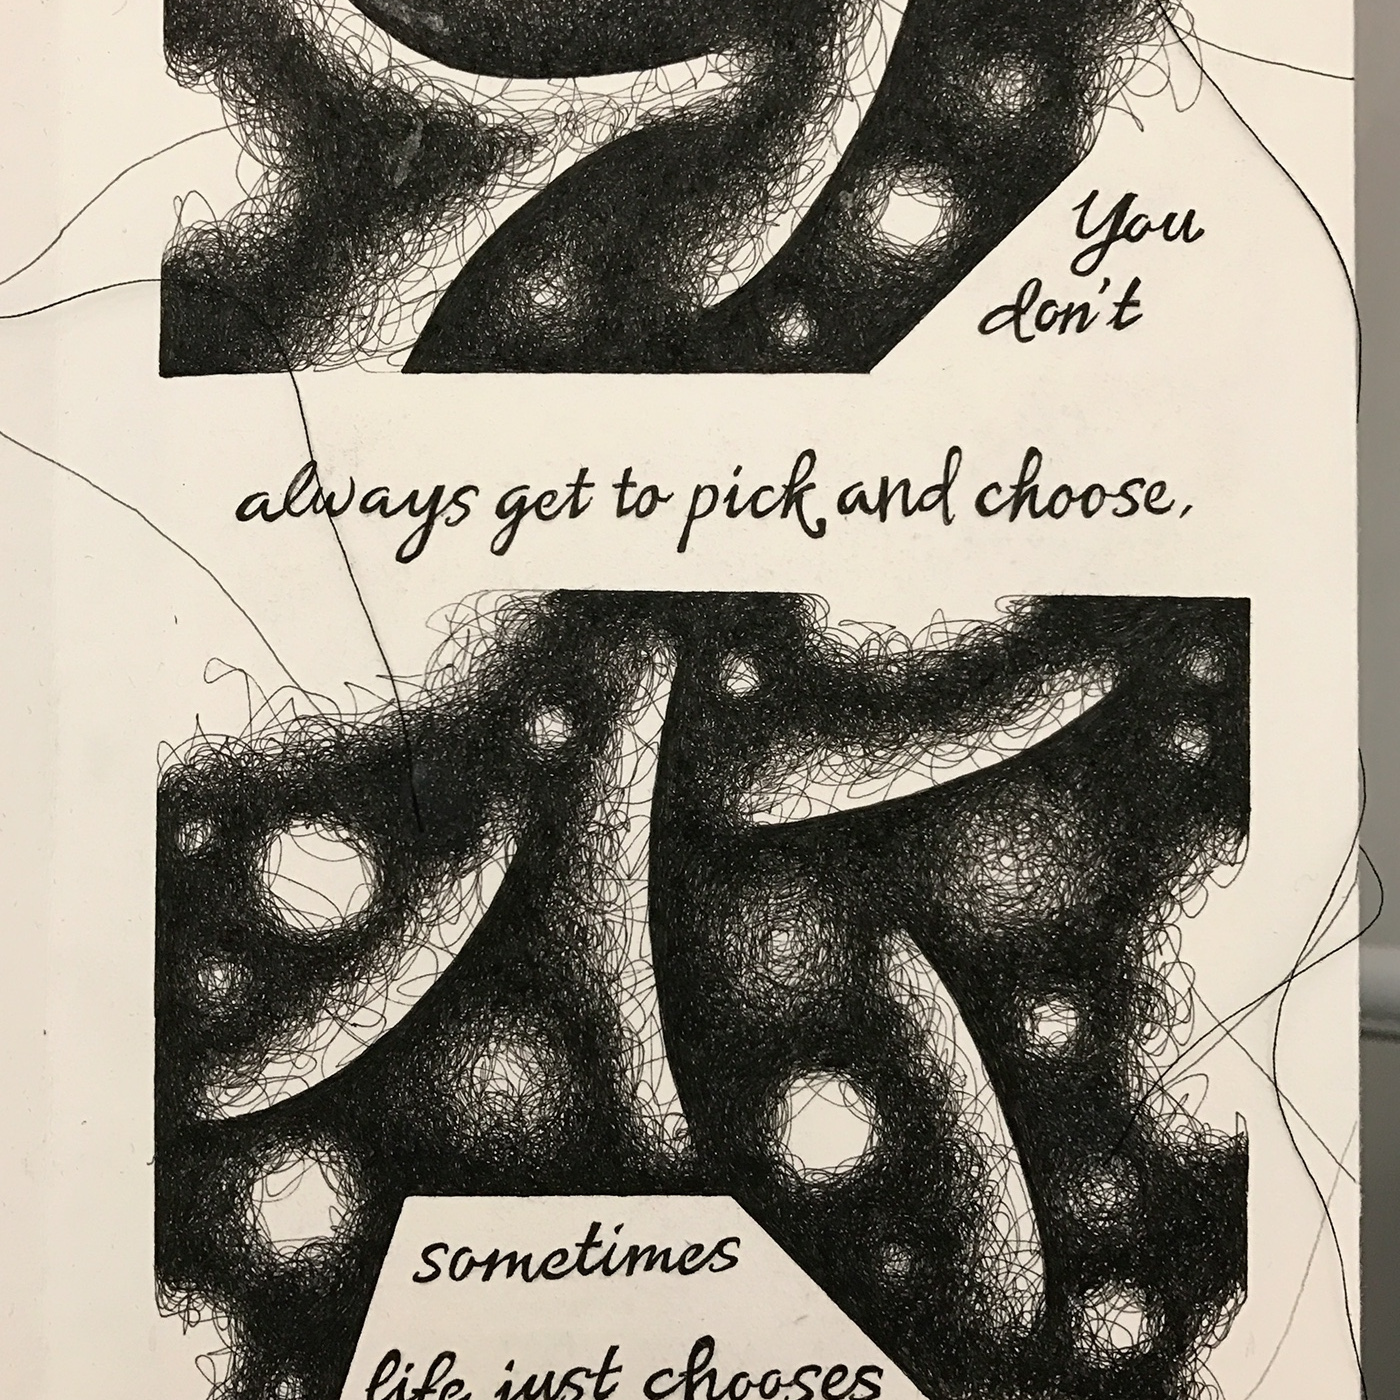 You
don't
always get to pick and choose,
sometimes
life just chooses